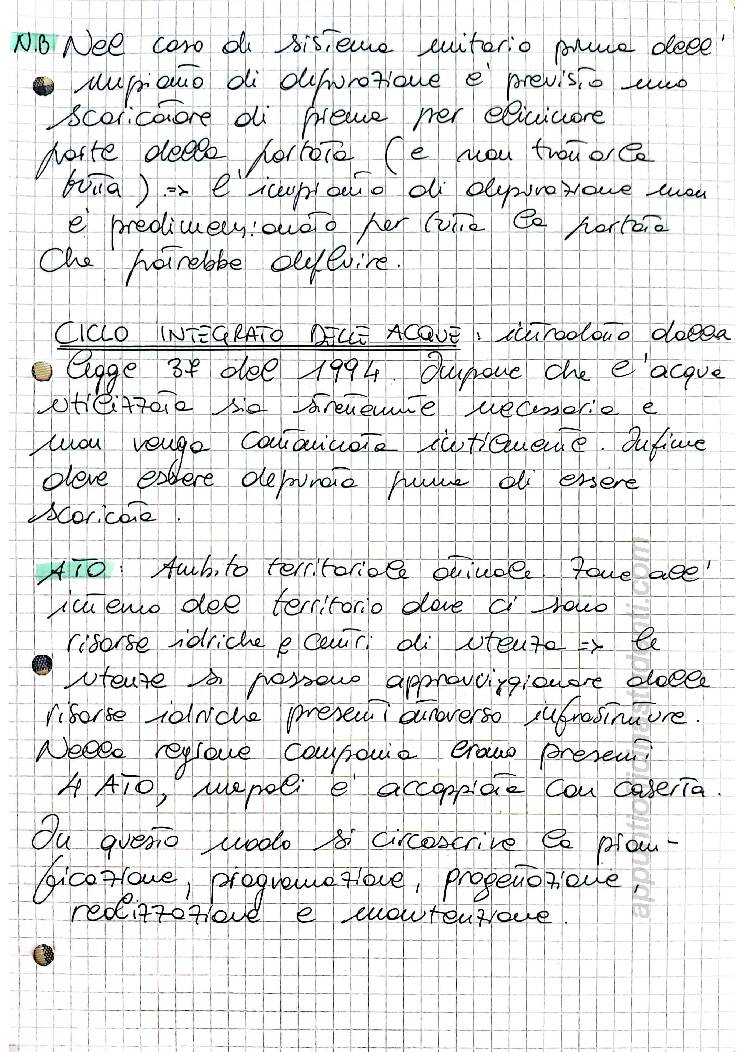 N.B Nel caso di sistema unitario prima dell'
impianto di depurazione e' previsto uno
scaricatore di piena per eliminare
parte della portata (e non trattarla
tutta) => l'impianto di depurazione non
e' predimensionato per tutta la portata
che potrebbe defluire.
CICLO INTEGRATO DELLE ACQUE: introdotto dalla
legge 37 del 1994. Impone che l'acqua
utilizzata sia strettamente necessaria e
non venga contaminata inutilmente. Infine
deve essere depurata prima di essere
scaricata.
ATO: Ambito territoriale ottimale. Zone all'
interno del territorio dove ci sono
risorse idriche e centri di utenza => le
utenze si possono approvvigionare dalle
risorse idriche presenti attraverso infrastrutture.
Nella regione Campania erano presenti
4 ATO, napoli e' accoppiata con caserta.
In questo modo si circoscrive la piani-
ficazione, programmazione, progettazione,
realizzazione e manutenzione.
appuntiorigineastudenti.com